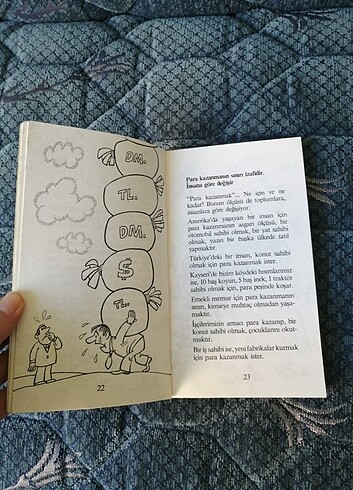 DM.
TL.
DM.
$
TL.
22
Para kazanmanın sınırı izafidir.
İnsana göre değişir
"Para kazanmak"... Ne için ve ne
kadar? Bunun ölçüsü de toplumlara,
insanlara göre değişiyor.
Amerika'da yaşayan bir insan için
para kazanmanın asgari ölçüsü, bir
otomobil sahibi olmak, bir yat sahibi
olmak, yazın bir başka ülkede tatil
yapmaktır.
Türkiye'deki bir insan, konut sahibi
olmak için para kazanmak ister.
Kayseri'de bizim köydeki hısımlarımız
ise, 10 baş koyun, 5 baş inek, 1 traktör
sahibi olmak için, para peşinde koşar.
Emekli memur için para kazanmanın
sınırı, kimseye muhtaç olmadan yaşa-
maktır.
İşçilerimizin amacı para kazanıp, bir
konut sahibi olmak, çocuklarını okut-
maktır.
Bir iş sahibi ise, yeni fabrikalar kurmak
için para kazanmak ister.
23